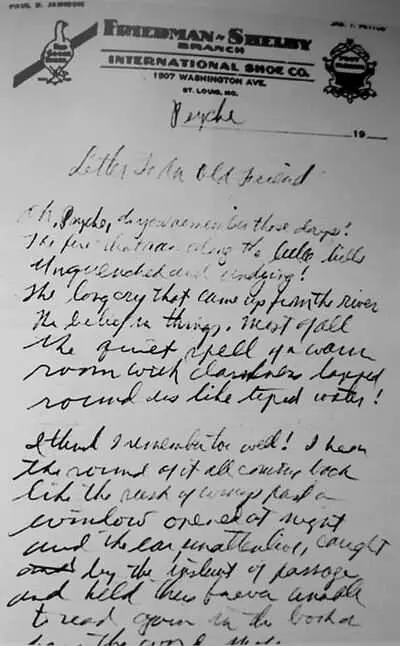 PAUL D. JAMISON
JAS. T. PETTUS
FRIEDMAN-SHELBY
BRANCH
INTERNATIONAL SHOE CO.
1507 WASHINGTON AVE.
ST. LOUIS, MO.
RED
GOOSE
SHOES
Psyche
19
Letter To An Old Friend
Oh, Psyche, do you remember those days!
The fire that ran along the hills
Unquenched and undying!
The long cry that came up from the river
The belief in things. Most of all
the quiet spell of a warm
room with darkness lapped
round us like tepid water!
I think I remember too well! I hear
the sound of it all coming back
like the rush of wings past a
window opened at night
and the ear unattentive, caught
and by the instant of passage
and held thus forever unable
to read again in the book
the word